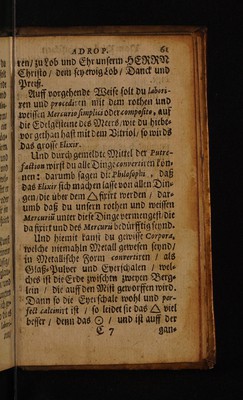 ADROP. 61
ren/ zu Lob und Ehr unserm HERRN
Christo/ dem sey ewig Lob/ Danck und
Preiß.
Auff vorgehende Weise solt du labori-
ren und procediren mit dem rothen und
weissen Mercurio simplus oder composito, auf
die Edelgsteine des Meers/ wie du hiebe-
vor gethan hast mit dem Vitriol/ so wirds
das grosse Elixir.
Und durch gemeldte Mittel der Putre-
faction wirst du alle Dinge convertiren kön-
nen: darumb sagen die Philosophi, daß
das Elixir sich machen lasse von allen Din-
gen/ die uber dem fixirt werden/ dar-
umb daß du unsern rothen und weissen
Mercurium unter diese Dinge vermengest/ die
da fixirt und des Mercurii bedürfftig seynd.
Und hiemit kanst du gewisse Corpora,
welche niemahln Metall gewesen seynd/
in Metallische Form convertiren/ als
Glaß-Pulver und Eyerschalen/ wel-
ches ist die Erde zwischen zweyen Berg-
lein/ die auff den Mist geworffen wird.
Dann so die Eyerschale wohl und per-
fect calcinirt ist/ so leidet sie das 🜂 viel
besser/ denn das ☉/ und ist auff der
E 7 gan-